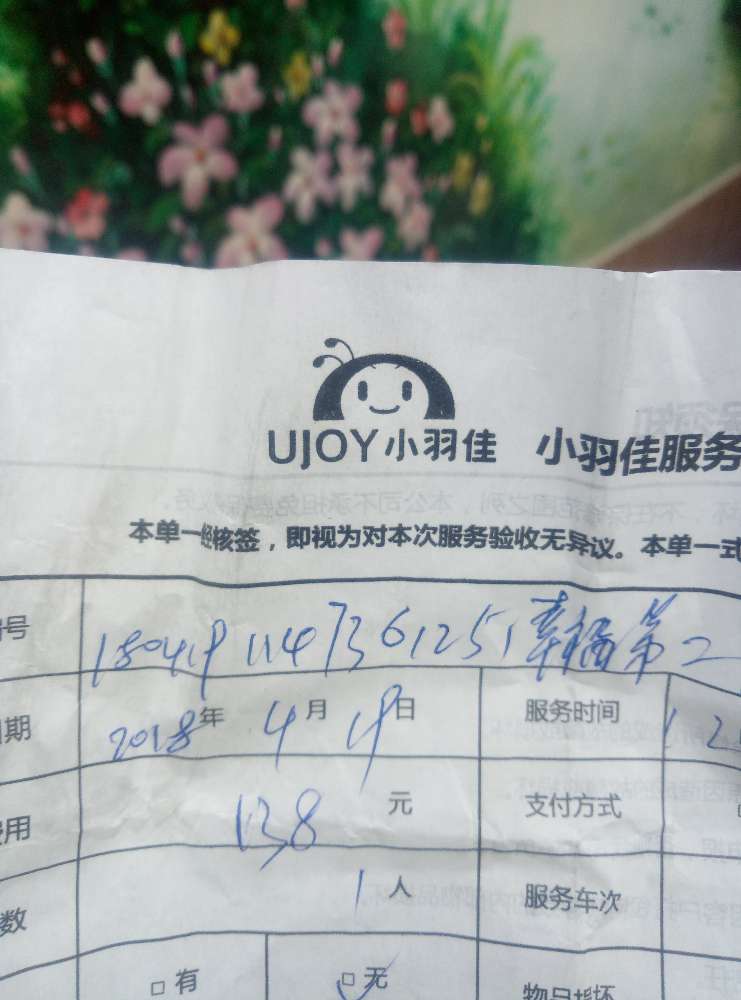 UJOY小羽佳 小羽佳服务
本单一经核签，即视为对本次服务验收无异议。本单一式
号 180419 114736125, 幸福第二
期 2018年4月19日 服务时间 12
费用 138元 支付方式
数 1人 服务车次
□有 □无 物品损坏